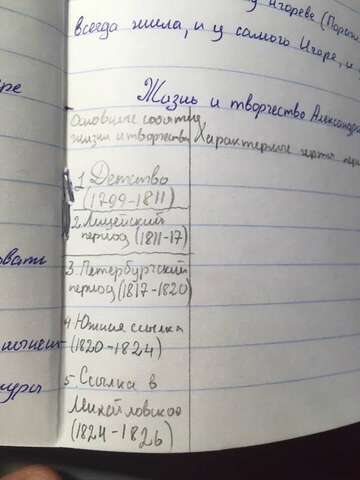 Игореве
всегда жила, и у самого Игоре, и
Жизнь и творчество Александра
Основные события
жизни и творчества
Характерные черты
1. Детство
(1799-1811)
2. Лицейский
период (1811-17)
3. Петербургский
период (1817-1820)
4 Южная ссылка
(1820-1824)
5. Ссылка в
Михайловское
(1824-1826)